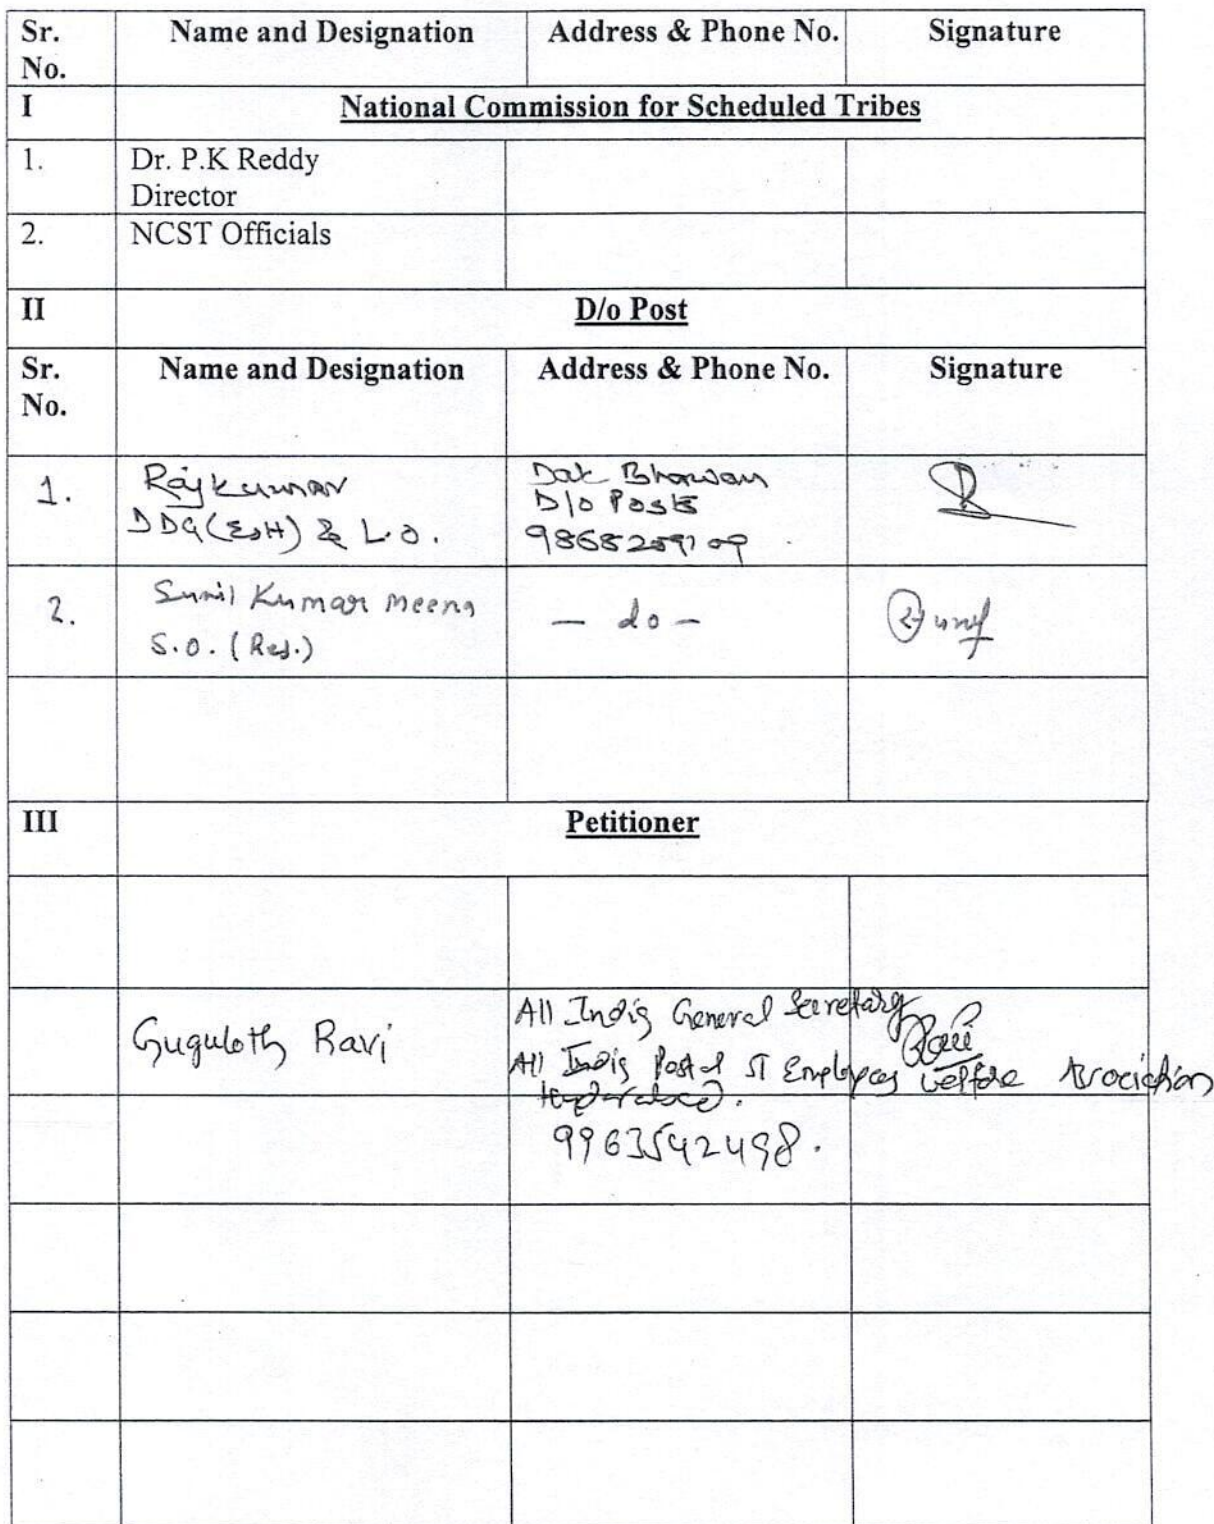 Sr. No. Name and Designation Address & Phone No. Signature
I National Commission for Scheduled Tribes
1. Dr. P.K Reddy
Director
2. NCST Officials
II D/o Post
Sr. No. Name and Designation Address & Phone No. Signature
1. Rajkumar
DDG(E&H) & L.O.
Dak Bhawan
D/o Posts
2. Sunil Kumar Meena
S.O. (Res.)
— do —
III Petitioner
Guguloth Ravi
All India General Secretary
Ravi
All India Postal ST Employees Welfare Association
Hyderabad.
9963542498.